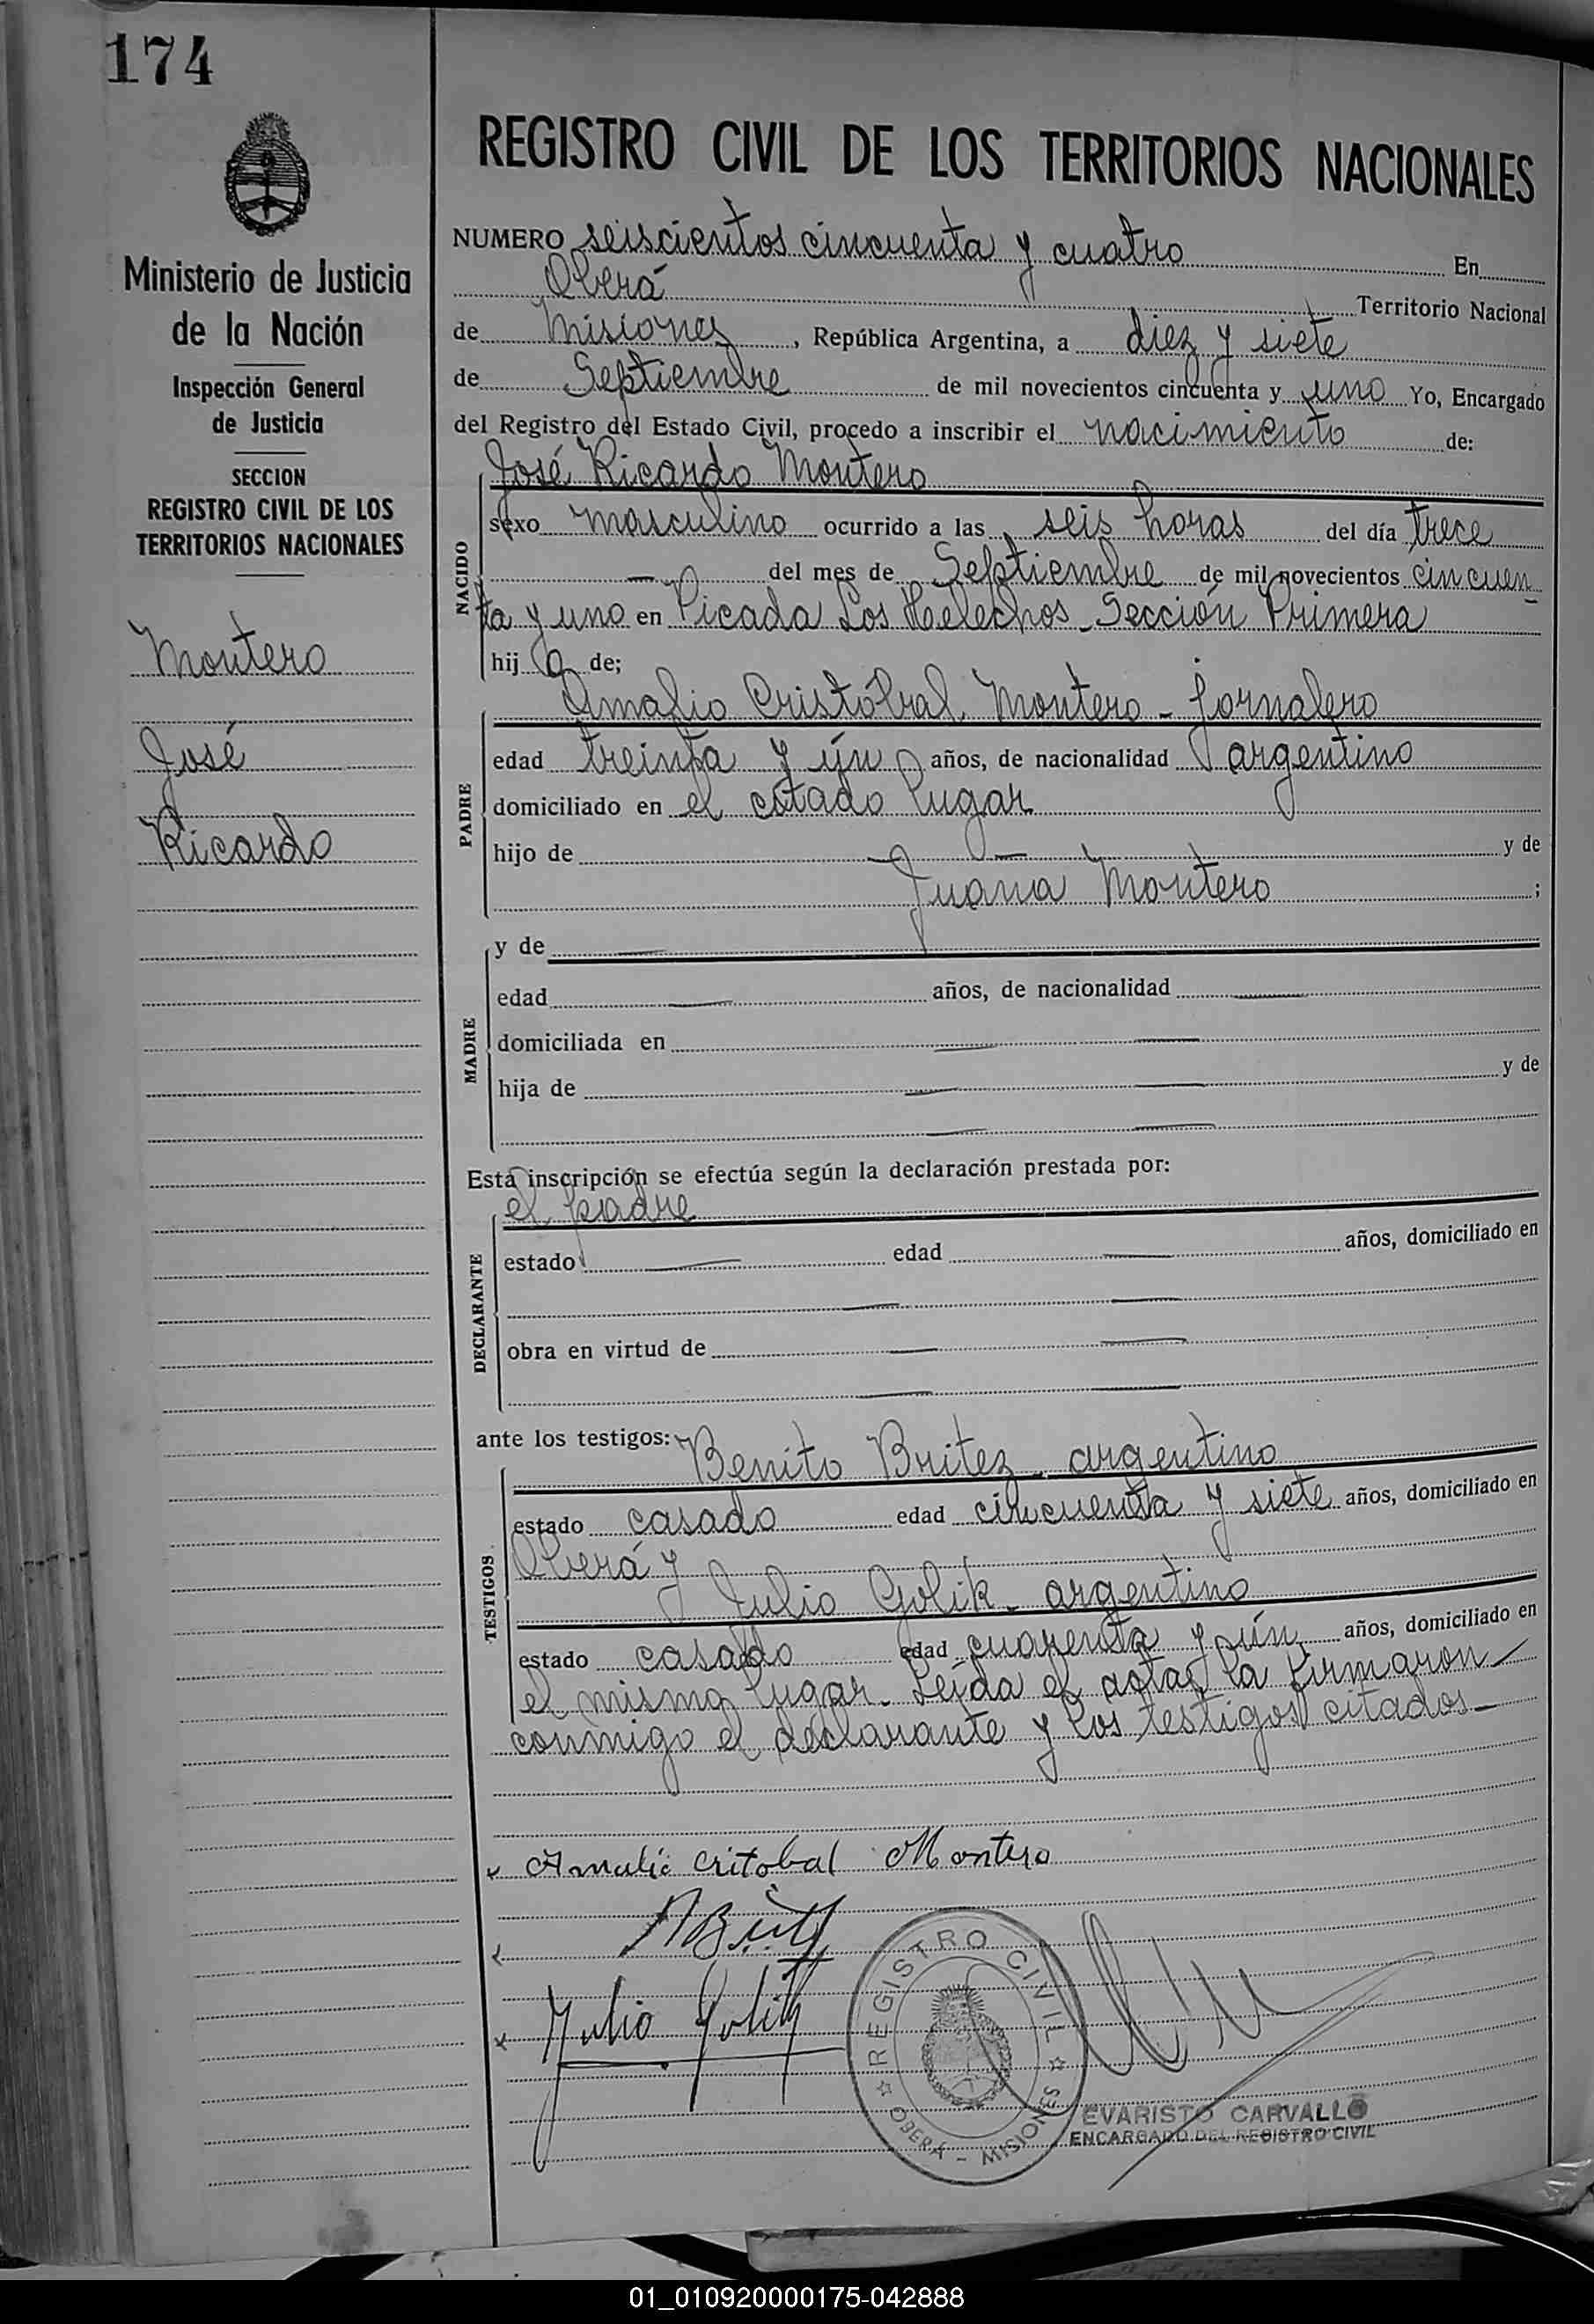 174
Ministerio de Justicia
de la Nación
Inspección General
de Justicia
SECCION
REGISTRO CIVIL DE LOS
TERRITORIOS NACIONALES
Montero
José
Ricardo
REGISTRO CIVIL DE LOS TERRITORIOS NACIONALES
NUMERO seiscientos cincuenta y cuatro En
Oberá Territorio Nacional
de Misiones, República Argentina, a diez y siete
de Septiembre de mil novecientos cincuenta y uno Yo, Encargado
del Registro del Estado Civil, procedo a inscribir el nacimiento de:
José Ricardo Montero
NACIDO
sexo masculino ocurrido a las seis horas del día trece
— del mes de Septiembre de mil novecientos cincuen
ta y uno en Picada Los Helechos - Sección Primera
hij o de;
Amalio Cristóbal Montero - jornalero
PADRE
edad treinta y ún años, de nacionalidad argentino
domiciliado en el citado lugar
hijo de — y de
Juana Montero ;
MADRE
y de —
edad — años, de nacionalidad —
domiciliada en — —
hija de — — y de
— —
Esta inscripción se efectúa según la declaración prestada por:
el padre
DECLARANTE
estado — edad — años, domiciliado en
— —
obra en virtud de — —
— —
ante los testigos:
Benito Britez - argentino
TESTIGOS
estado casado edad cincuenta y siete años, domiciliado en
Oberá y
Julio Golik - argentino
estado casado edad cuarenta y ún años, domiciliado en
el mismo lugar - Leída el acta, la firmaron
conmigo el declarante y los testigos citados -
x Amalio Critobal Montero
x
x Julio Golik
REGISTRO CIVIL
OBERÁ - MISIONES
EVARISTO CARVALLO
ENCARGADO DEL REGISTRO CIVIL
01_010920000175-042888